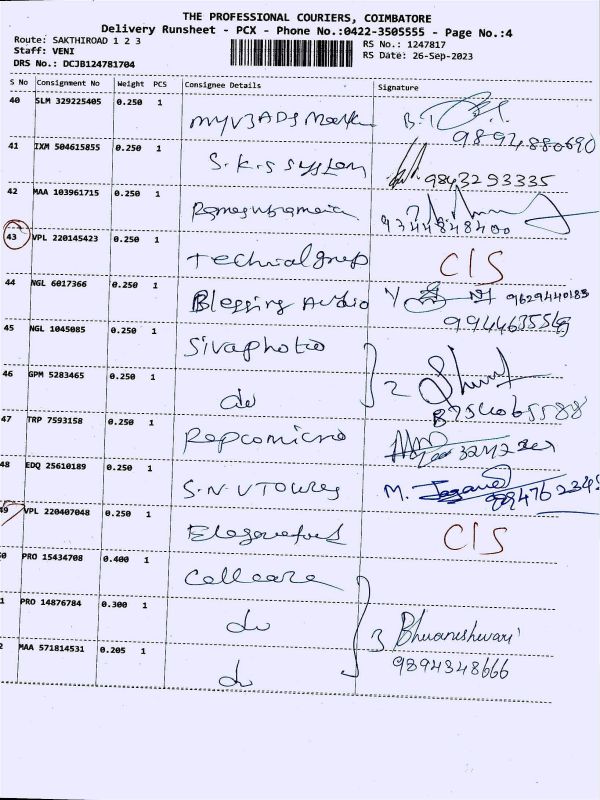 THE PROFESSIONAL COURIERS, COIMBATORE
Delivery Runsheet - PCX - Phone No.:0422-3505555 - Page No.:4
Route: SAKTHIROAD 1 2 3
RS No.: 1247817
Staff: VENI
RS Date: 26-Sep-2023
DRS No.: DCJB124781704
S No Consignment No Weight PCS Consignee Details Signature
40 SLM 329225405 0.250 1 MYV3ADS
9894880690
41 IXM 504615855 0.250 1 S.K.S System 9843293335
42 MAA 103961715 0.250 1
9344848400
43 VPL 220145423 0.250 1 C/S
44 NGL 6017366 0.250 1 Blessing Audio 9629440183
9944635569
45 NGL 1045085 0.250 1 Sivaphoto
46 GPM 5283465 0.250 1 do 2
47 TRP 7593158 0.250 1
48 EDQ 25610189 0.250 1 S.N.V Towers M.
49 VPL 220407048 0.250 1 C/S
0 PRO 15434708 0.400 1 Callcare
1 PRO 14876784 0.300 1 do 3 Bhuvaneshwari
9894348666
2 MAA 571814531 0.205 1 do